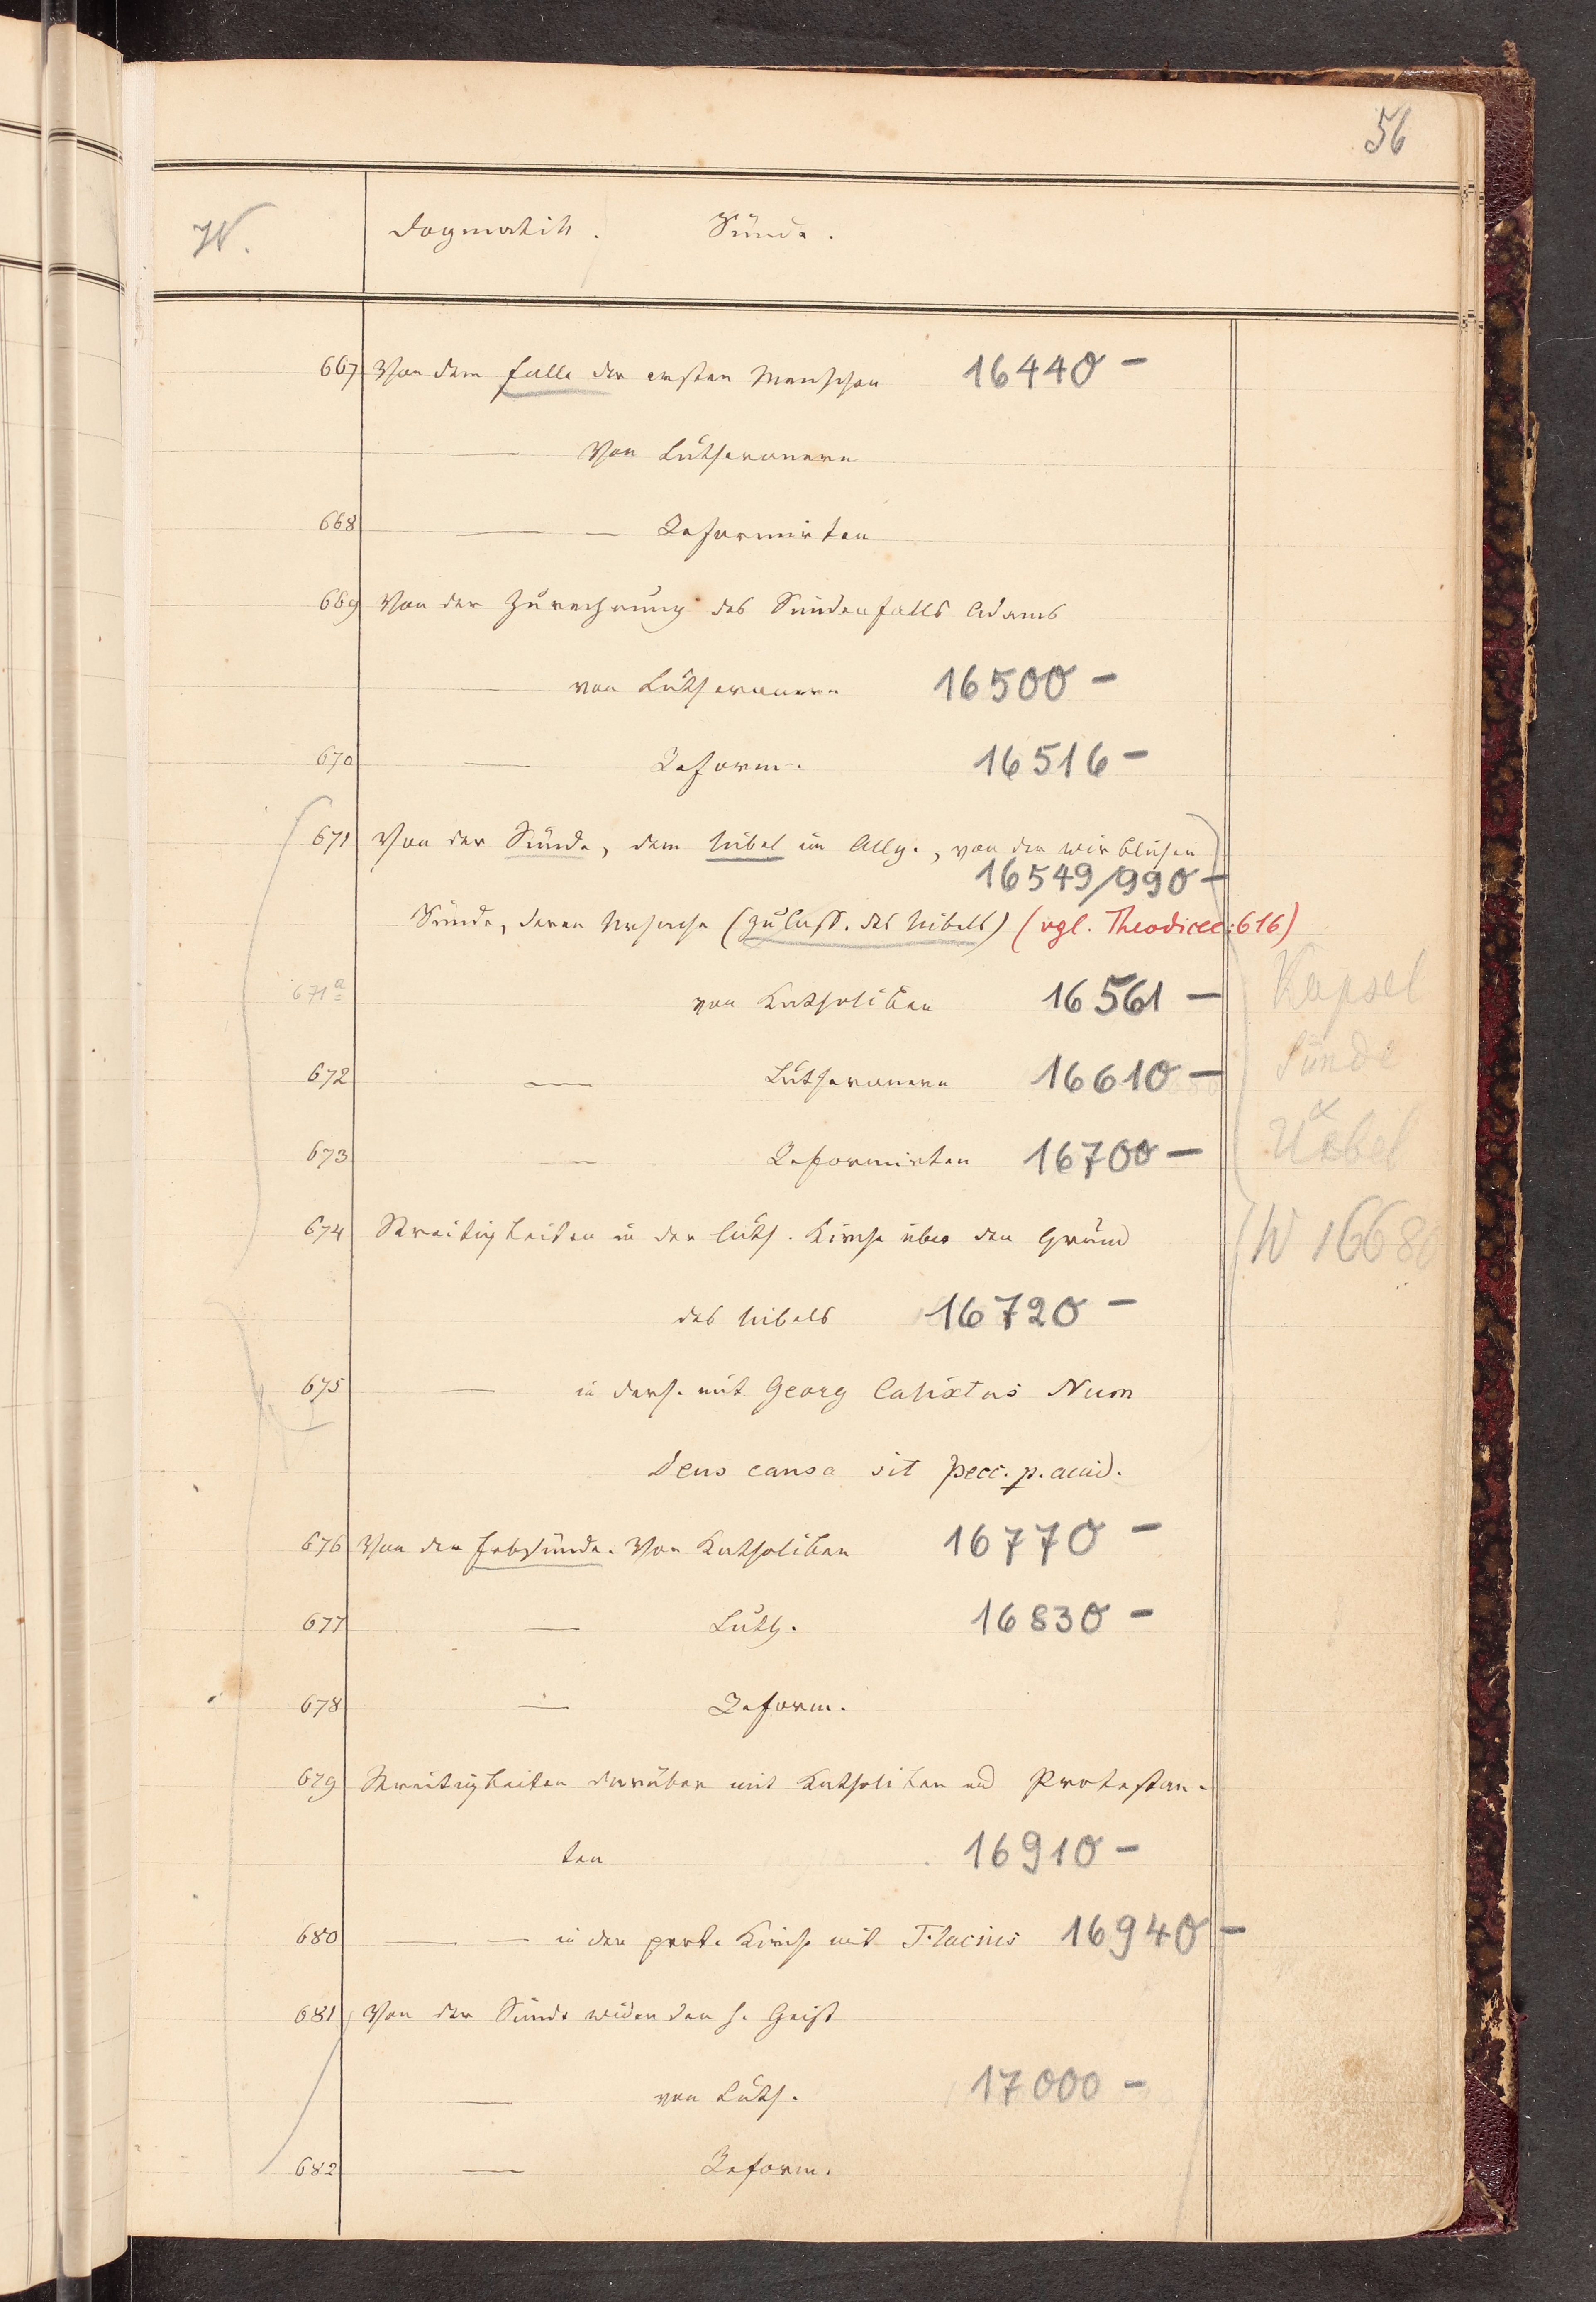 56
W.
Dogmatik. Sünde.
667 Von dem Falle der ersten Menschen 16440 –
— Von Lutheranern
668 — — Reformirten
669 Von der Zurechnung des Sündenfalls Adams
— von Lutheranern 16500 –
670 — Reform. 16516 –
671 Von der Sünde, dem Uibel im Allg., von der wirklichen
16549/990 –
Sünde, deren Ursache (Zulass. des Uibels) (vgl. Theodicee: 616)
671a von Katholiken 16561 –
Kapsel
672 — Lutheranern 16610 –
Sünde
&
673 — Reformirten 16700 –
Uebel
674 Streitigkeiten in der luth. Kirche über den Grund
W 16680
des Uibels 16720 –
675 — in ders. mit Georg Calixtus Num
Deus causa sit pecc. p. accid.
676 Von der Erbsünde. Von Katholiken 16770 –
677 — Luth. 16830 –
678 — Reform.
679 Streitigkeiten darüber mit Katholiken und Protestan-
ten 16910 –
680 — — in der prot. Kirche mit Flacius 16940 –
681 Von der Sünde wider den h. Geist
— von Luth. 17000 –
682 — Reform.